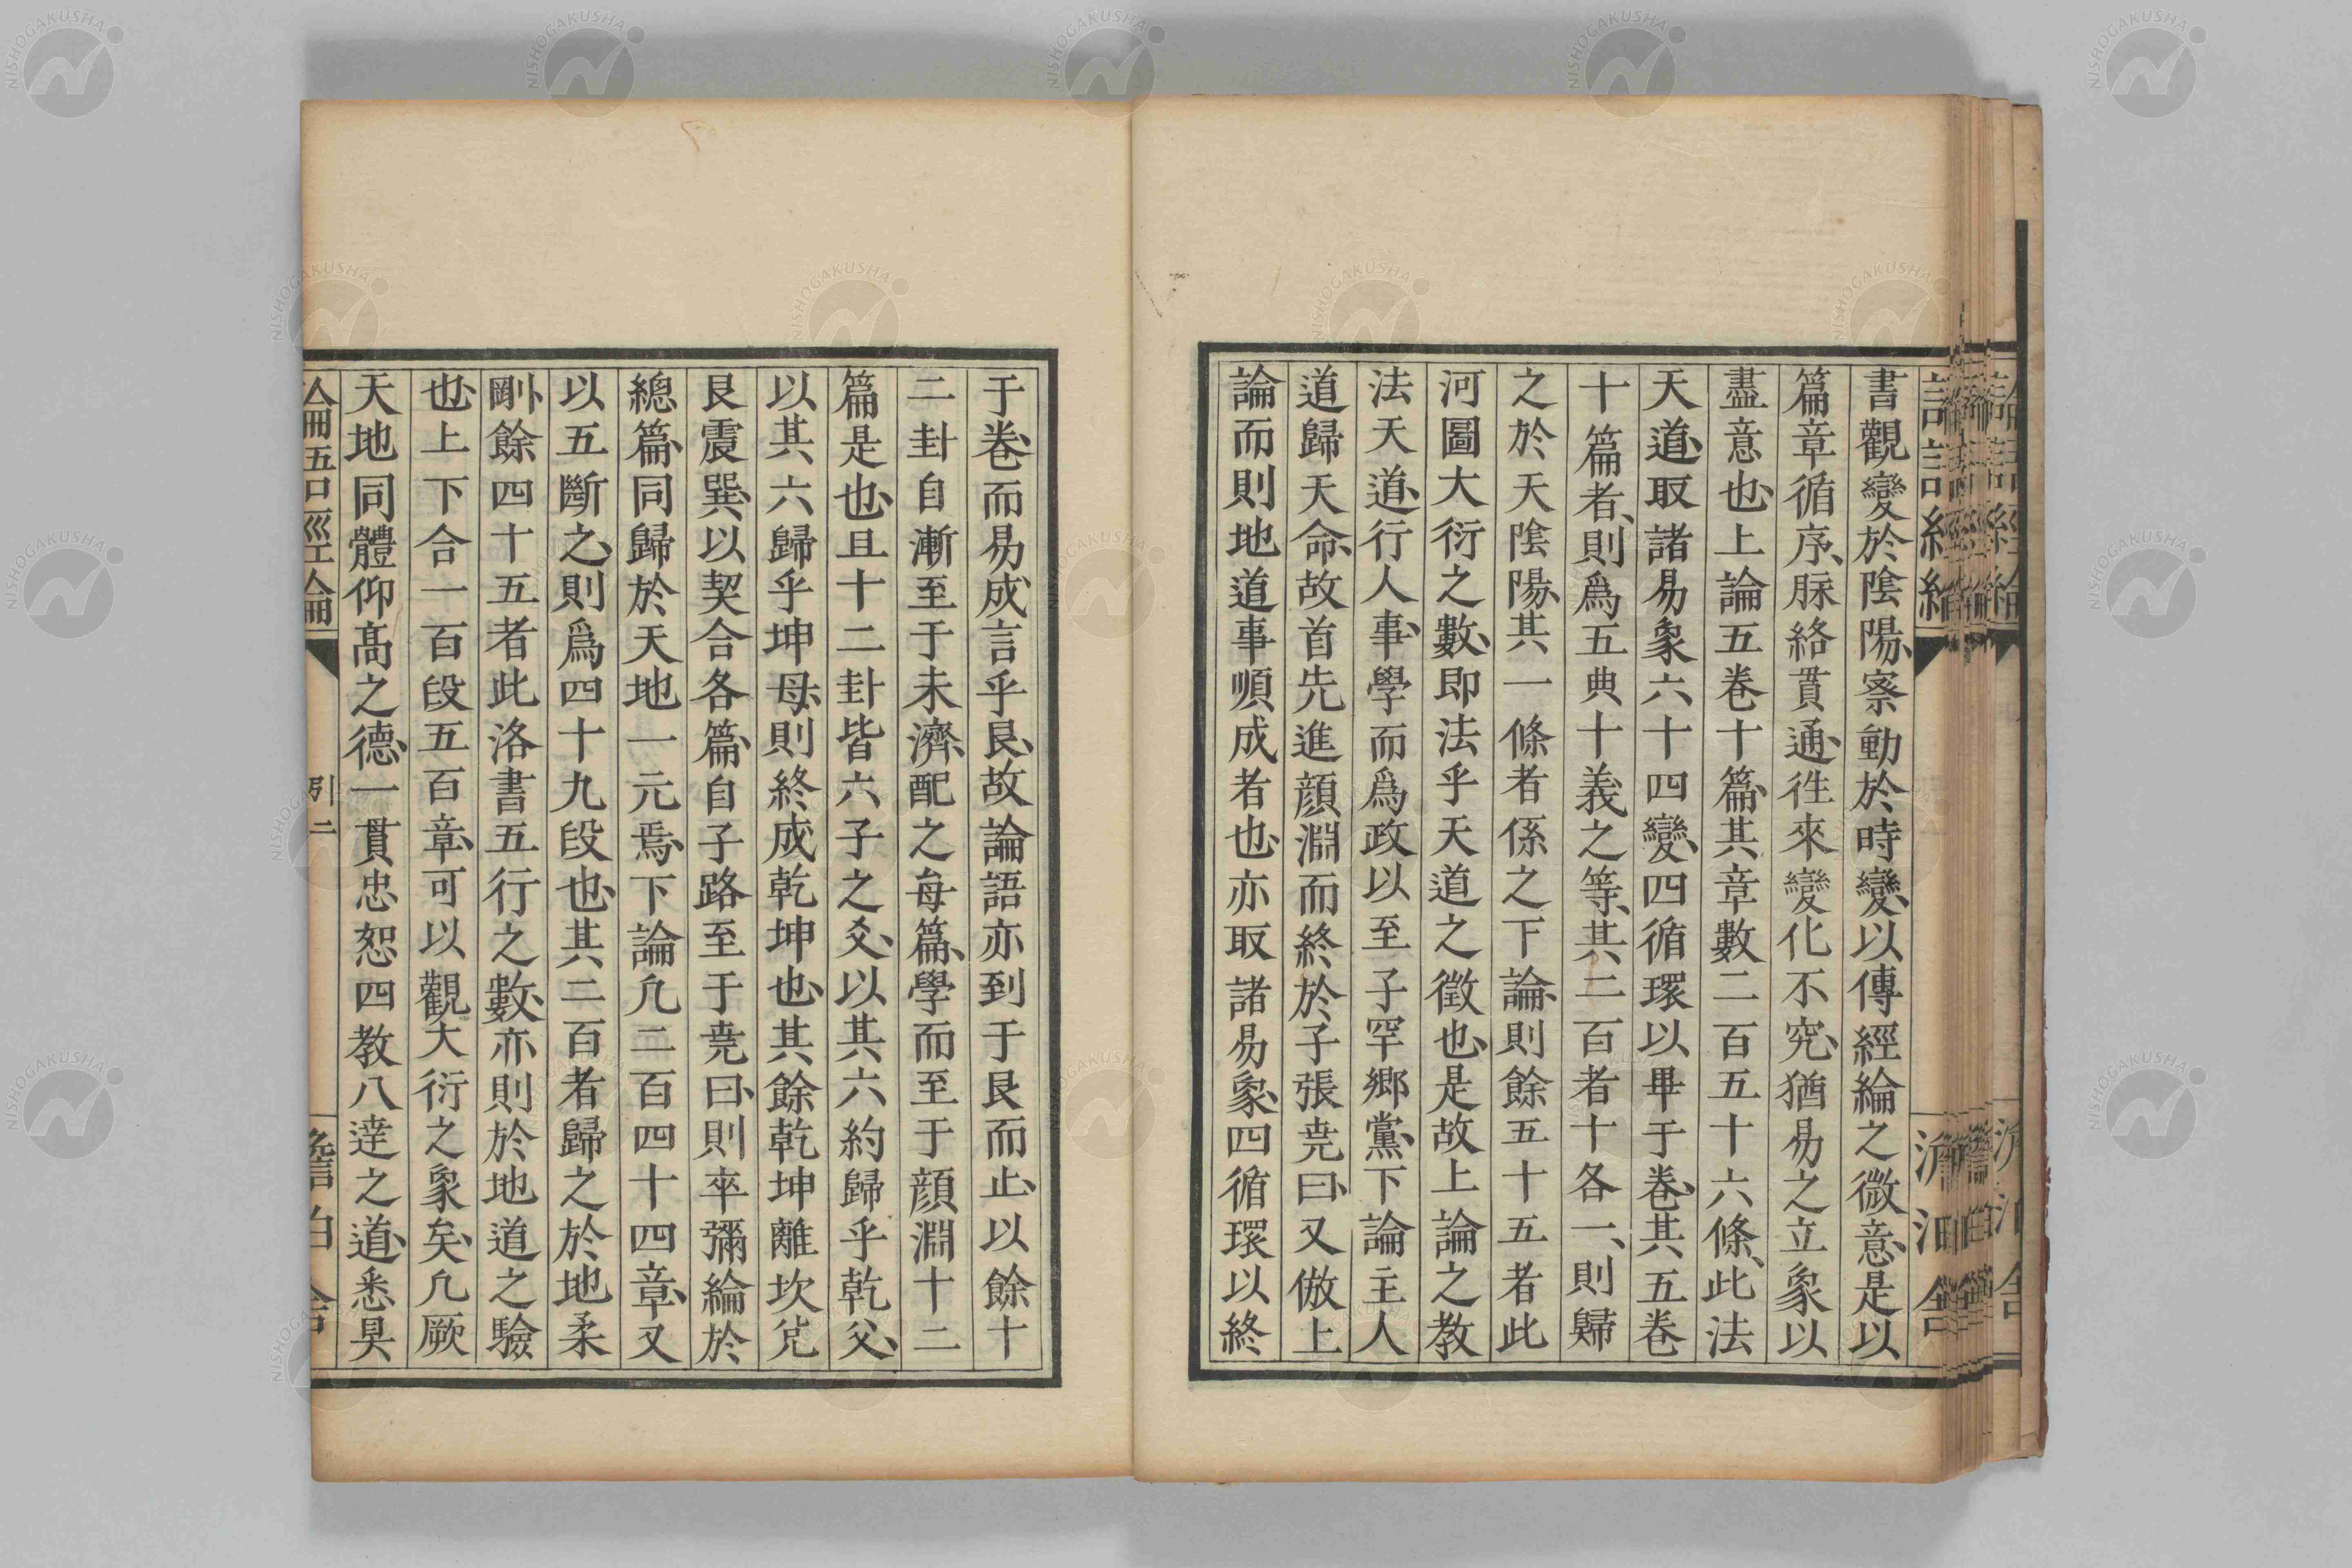 書觀變於陰陽、察動於時變、以傳經綸之微意、是以
篇章循序、脉絡貫通、徃來變化不究、猶易之立象以
盡意也、上論五卷十篇、其章數二百五十六條、此法
天道、取諸易象六十四變、四循環以畢于卷、其五卷
十篇者、則爲五典十義之等、其二百者十各一、則歸
之於天陰陽、其一條者係之下論、則餘五十五者此
河圖大衍之數、即法乎天道之徵也、是故上論之教
法天道、行人事、學而爲政以至子罕鄉黨、下論主人
道歸天命、故首先進顏淵而終於子張尭曰、又倣上
論而則地道事順成者也、亦取諸易象、四循環以終
于卷、而易成言乎艮、故論語亦到于艮而止、以餘十
二卦自漸至于未濟、配之每篇、學而至于顏淵十二
篇是也、且十二卦皆六子之爻、以其六約歸乎乾父、
以其六歸乎坤母、則終成乾坤也、其餘乾坤離坎兌
艮震巽、以契合各篇、自子路至于尭曰、則卒彌綸於
總篇、同歸於天地一元焉、下論凢二百四十四章、又
以五斷之、則爲四十九段也、其二百者歸之於地柔
剛、餘四十五者此洛書五行之數、亦則於地道之驗
也、上下合一百段五百章、可以觀大衍之象矣、凢厥
天地同體仰髙之德、一貫忠恕四教八達之道、悉具
論語經綸 引二